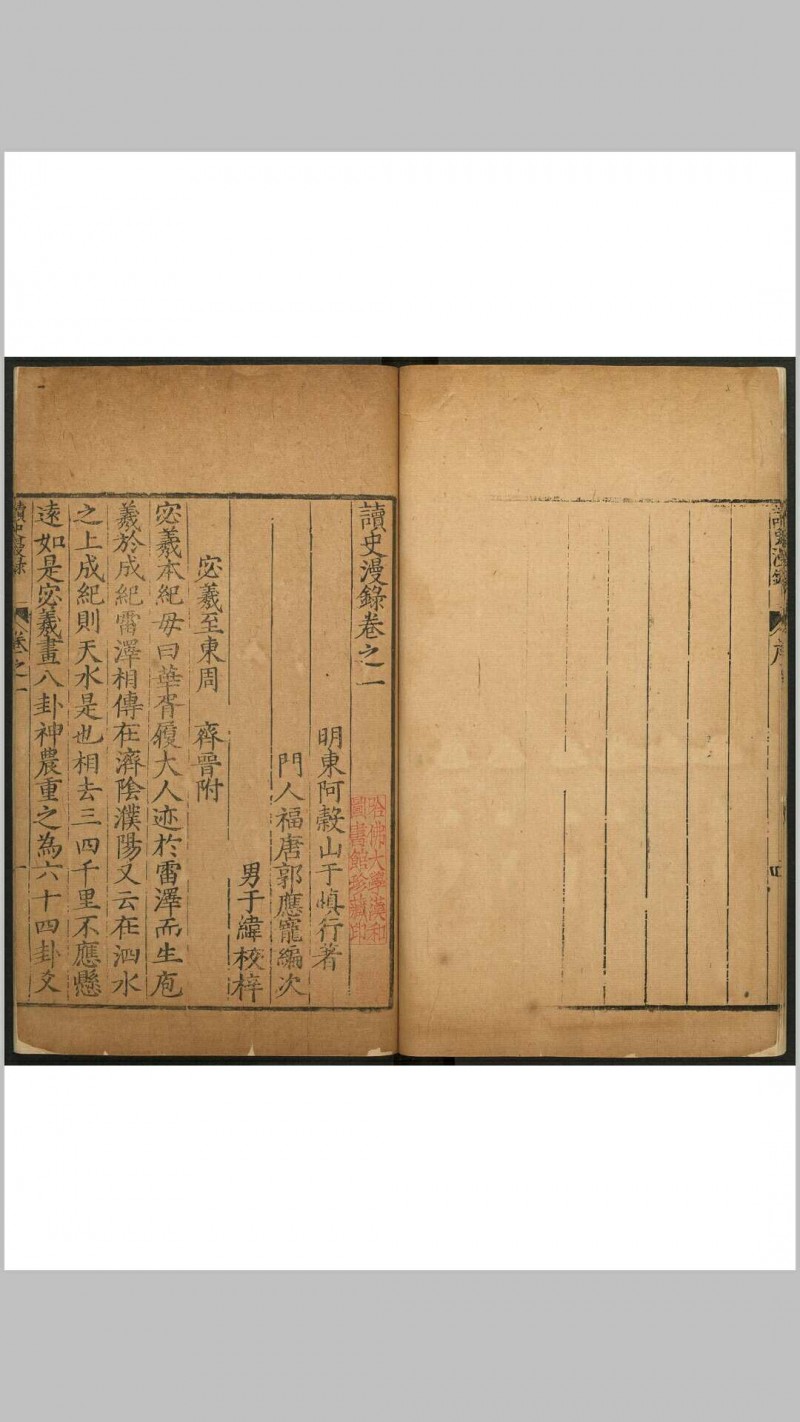 讀史漫錄
序
四
讀史漫錄卷之一
明東阿穀山于慎行著
門人福唐郭應寵編次
男于緯校梓
哈佛大學漢和
圖書館珍藏印
宓羲至東周　齊晉附
宓羲本紀毋曰華胥履大人迹於雷澤而生庖
羲於成紀雷澤相傳在濟陰濮陽又云在泗水
之上成紀則天水是也相去三四千里不應懸
遠如是宓羲畫八卦神農重之為六十四卦爻
讀史漫錄
卷之一
一